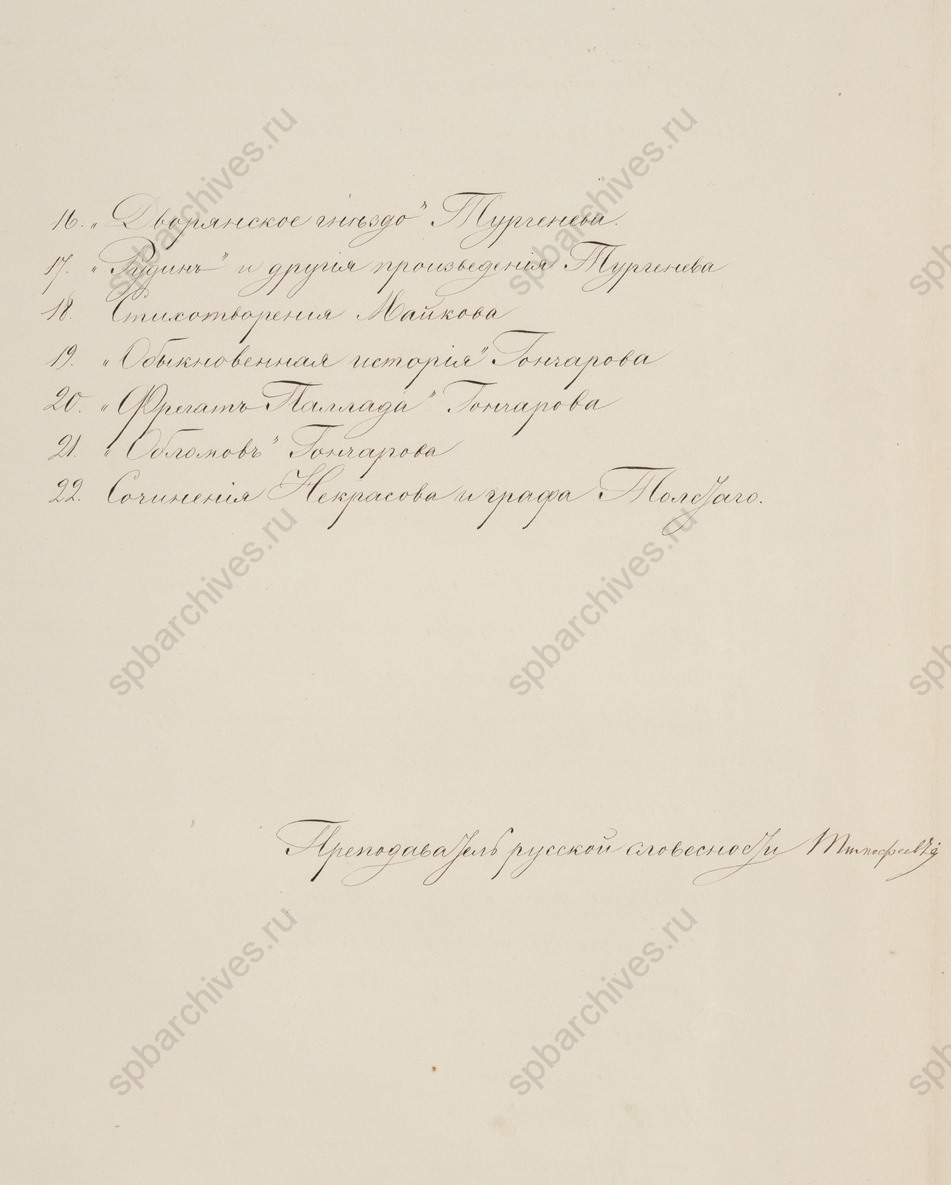 16. „Дворянское гнѣздо" Тургенева.
17. „Рудинъ" и другія произведенія Тургенева
18. Стихотворенія Майкова
19. „Обыкновенная исторія" Гончарова
20. „Фрегатъ Паллада" Гончарова
21. „Обломовъ" Гончарова
22. Сочиненія Некрасова и графа Толстаго.
Преподаватель русской словесности
spbarchives.ru
spbarchives.ru
spbarchives.ru
spbarchives.ru
spbarchives.ru
spbarchives.ru